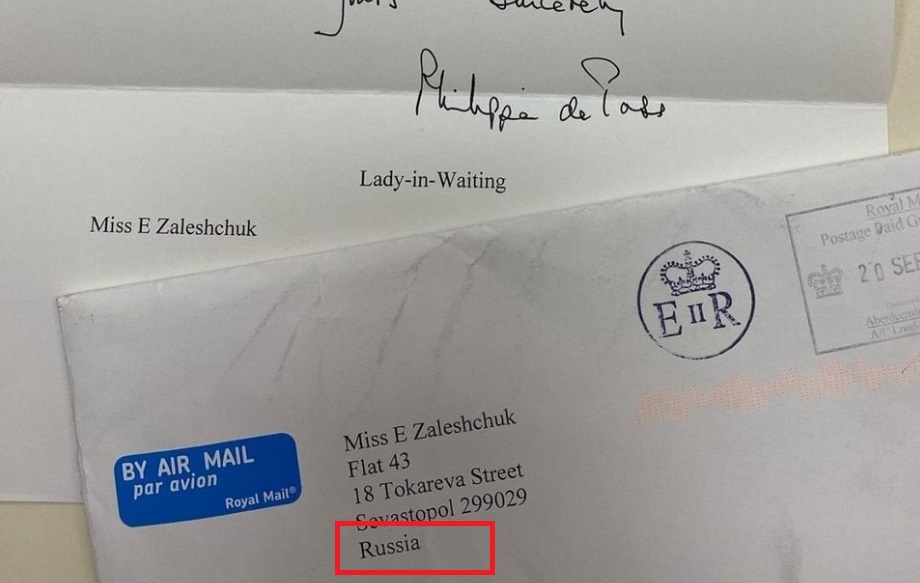 Yours sincerely
Philippa de Pass
Lady-in-Waiting
Miss E Zaleshchuk
E II R
Royal M
Postage Paid G
20 SEP
Aberdeen
A/C Lon
BY AIR MAIL
par avion
Royal Mail®
Miss E Zaleshchuk
Flat 43
18 Tokareva Street
Sevastopol 299029
Russia